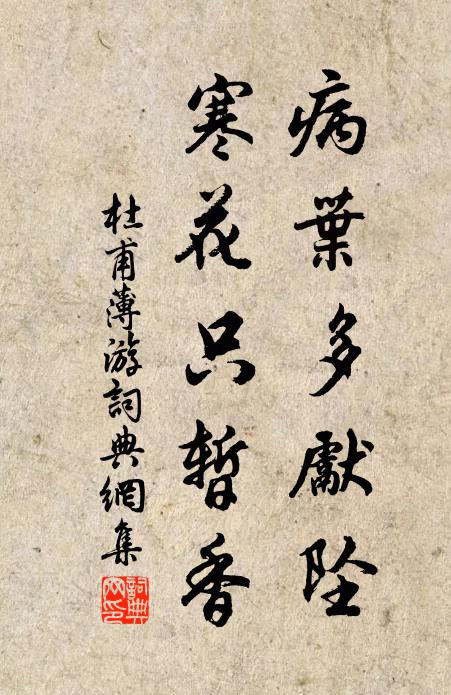 病葉多獻坠
寒花只暫香
杜甫薄游詞典網集
詞典网印